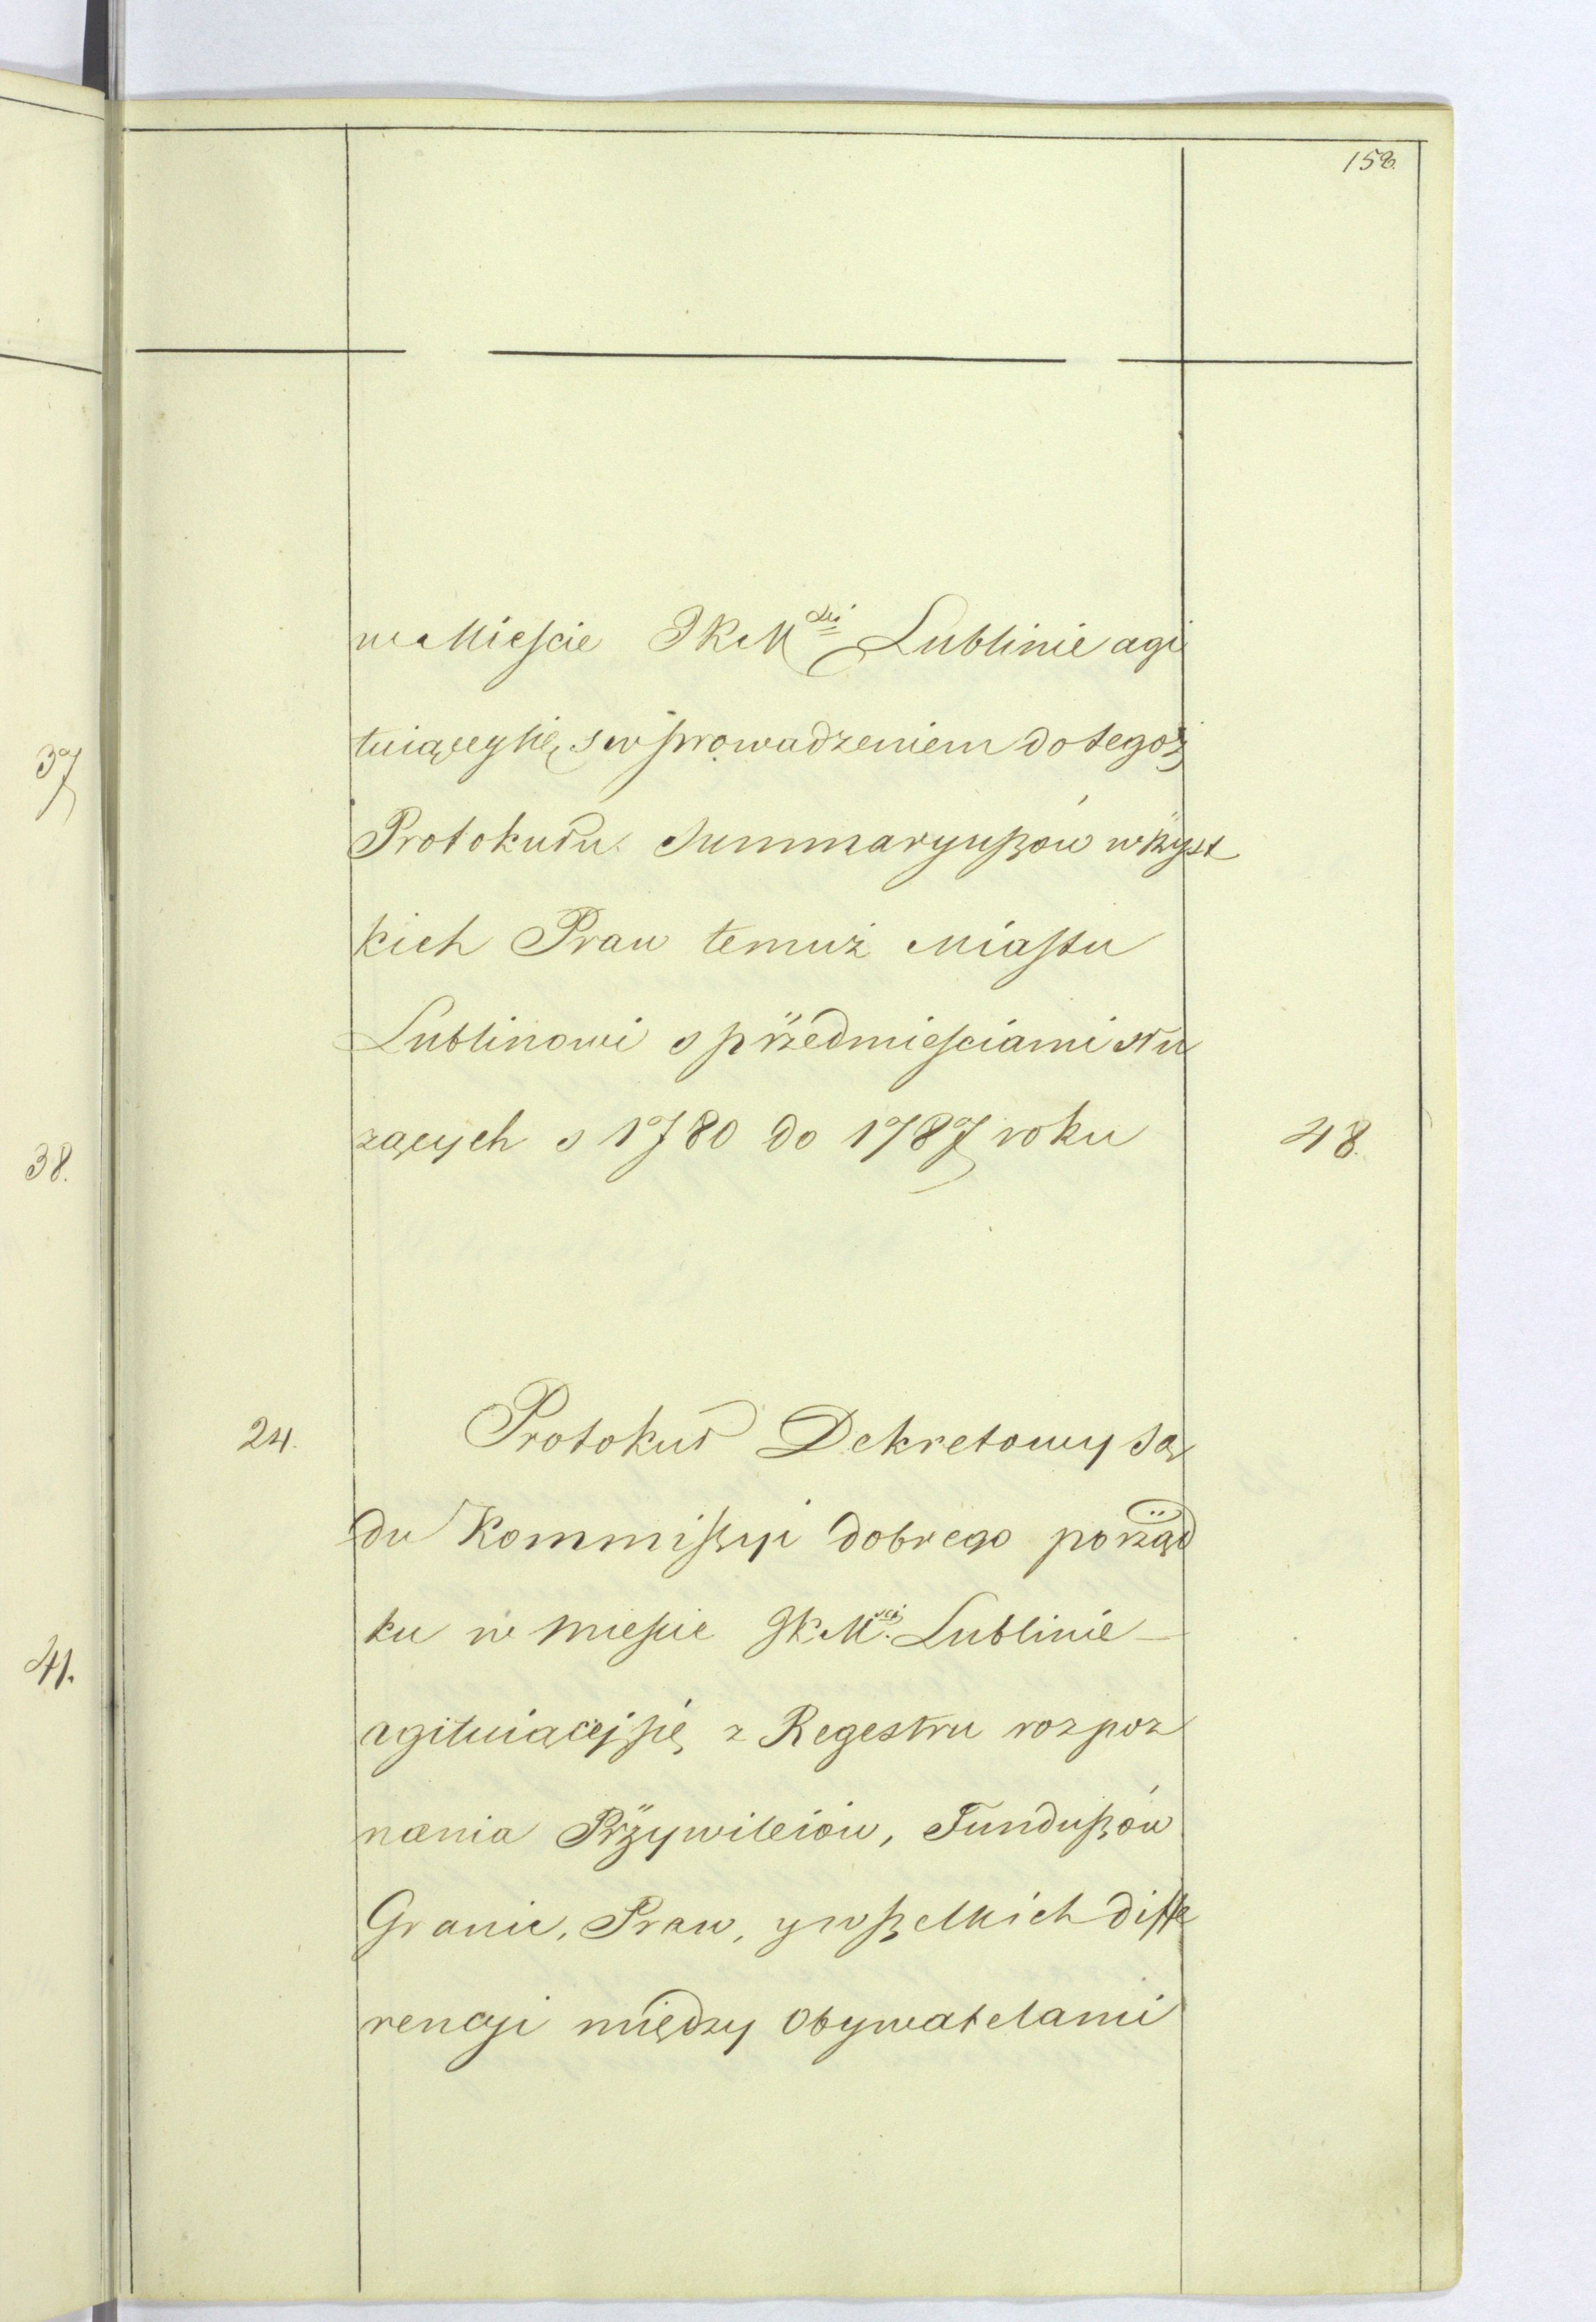 158.
w Mieście JKMści Lublinie agi
tuiącey się, s wprowadzeniem do tegoż
Protokułu Summaryuszów wszyst
kich Praw temuż Miastu
Lublinowi s przedmieściami słu
zących s 1780 do 1787 roku 48.
24. Protokuł Dekretowy Są
du Kommissyi dobrego porząd
ku w Mieście JKMści Lublinie
agituiącej się z Regestru rozpoz
nania Przywileiów, Funduszów
Granic, Praw, y wszelkich diffe
rencyi między Obywatelami
37
38.
41.